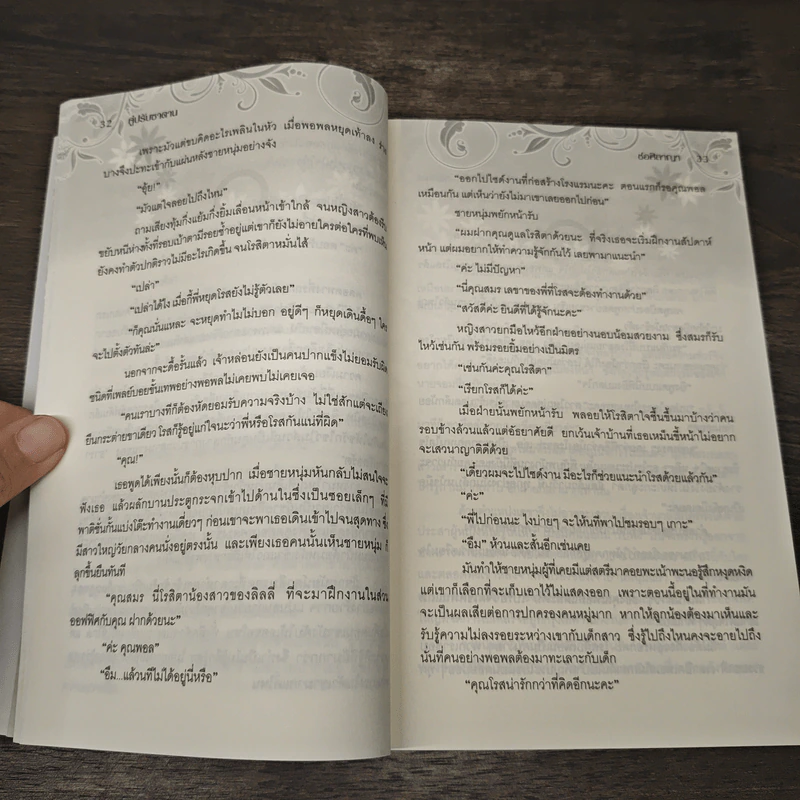 32 คู่ปรับซาตาน
เพราะมัวแต่ขบคิดอะไรเพลินในหัว เมื่อพอพลหยุดเท้าลง ร่าง
บางจึงปะทะเข้ากับแผ่นหลังชายหนุ่มอย่างจัง
“อุ้ย!”
“มัวแต่ใจลอยไปถึงไหน”
ถามเสียงทุ้มกึ่งแย้มกึ่งยิ้มเลื่อนหน้าเข้าใกล้ จนหญิงสาวต้อง
ขยับหนีห่างทั้งที่รอบเบ้าตามีรอยช้ำอยู่แต่เขาก็ยังไม่อายใครต่อใครที่พบเห็น
ยังคงทำตัวปกติราวไม่มีอะไรเกิดขึ้น จนโรสิตาหมั่นไส้
“เปล่า”
“เปล่าได้ไง เมื่อกี้พี่หยุดโรสยังไม่รู้ตัวเลย”
“ก็คุณนั่นแหละ จะหยุดทำไมไม่บอก อยู่ดีๆ ก็หยุดเดินดื้อๆ ใคร
จะไปตั้งตัวทันล่ะ”
นอกจากจะดื้อรั้นแล้ว เจ้าหล่อนยังเป็นคนปากแข็งไม่ยอมรับผิด
ชนิดที่เพลย์บอยชั้นเทพอย่างพอพลไม่เคยพบไม่เคยเจอ
“คนเราบางทีก็ต้องหัดยอมรับความจริงบ้าง ไม่ใช่สักแต่จะเถียง
ยืนกระต่ายขาเดียว โรสก็รู้อยู่แก่ใจนะว่าพี่หรือโรสกันแน่ที่ผิด”
“คุณ!”
เธอพูดได้เพียงนั้นก็ต้องหุบปาก เมื่อชายหนุ่มหันกลับไม่สนใจจะ
ฟังเธอ แล้วผลักบานประตูกระจกเข้าไปด้านในซึ่งเป็นซอยเล็กๆ ที่มี
พาติชั่นกั้นแบ่งโต๊ะทำงานเดี่ยวๆ ก่อนเขาจะพาเธอเดินเข้าไปจนสุดทาง ซึ่ง
มีสาวใหญ่วัยกลางคนนั่งอยู่ตรงนั้น และเพียงเธอคนนั้นเห็นชายหนุ่ม ก็
ลุกขึ้นยืนทันที
“คุณสมร นี่โรสิตาน้องสาวของลิลลี่ ที่จะมาฝึกงานในส่วน
ออฟฟิศกับคุณ ฝากด้วยนะ”
“ค่ะ คุณพอล”
“อืม...แล้วนทีไม่ได้อยู่นี่หรือ”
ช่อศิลาญา 33
“ออกไปไซด์งานที่ก่อสร้างโรงแรมนะคะ ตอนแรกก็รอคุณพอล
เหมือนกัน แต่เห็นว่ายังไม่มาเขาเลยออกไปก่อน”
ชายหนุ่มพยักหน้ารับ
“ผมฝากคุณดูแลโรสิตาด้วยนะ ที่จริงเธอจะเริ่มฝึกงานสัปดาห์
หน้า แต่ผมอยากให้ทำความรู้จักกันไว้ เลยพามาแนะนำ”
“ค่ะ ไม่มีปัญหา”
“นี่คุณสมร เลขาของพี่ที่โรสจะต้องทำงานด้วย”
“สวัสดีค่ะ ยินดีที่ได้รู้จักนะคะ”
หญิงสาวยกมือไหว้อีกฝ่ายอย่างนอบน้อมสวยงาม ซึ่งสมรก็รับ
ไหว้เช่นกัน พร้อมรอยยิ้มอย่างเป็นมิตร
“เช่นกันค่ะคุณโรสิตา”
“เรียกโรสก็ได้ค่ะ”
เมื่อฝ่ายนั้นพยักหน้ารับ พลอยให้โรสิตาใจชื้นขึ้นมาบ้างว่าคน
รอบข้างล้วนแล้วแต่อัธยาศัยดี ยกเว้นเจ้าบ้านที่เธอเหม็นขี้หน้าไม่อยาก
จะเสวนาญาติดีด้วย
“เดี๋ยวผมจะไปไซด์งาน มีอะไรก็ช่วยแนะนำโรสด้วยแล้วกัน”
“ค่ะ”
“พี่ไปก่อนนะ ไงบ่ายๆ จะให้นทีพาไปชมรอบๆ เกาะ”
“อืม” ห้วนและสั้นอีกเช่นเคย
มันทำให้ชายหนุ่มผู้ที่เคยมีแต่สตรีมาคอยพะเน้าพะนอรู้สึกหงุดหงิด
แต่เขาก็เลือกที่จะเก็บเอาไว้ไม่แสดงออก เพราะตอนนี้อยู่ในที่ทำงานมัน
จะเป็นผลเสียต่อการปกครองคนหมู่มาก หากให้ลูกน้องต้องมาเห็นและ
รับรู้ความไม่ลงรอยระหว่างเขากับเด็กสาว ซึ่งรู้ไปถึงไหนคงจะอายไปถึง
นั่นที่คนอย่างพอพลต้องมาทะเลาะกับเด็ก
“คุณโรสน่ารักกว่าที่คิดอีกนะคะ”